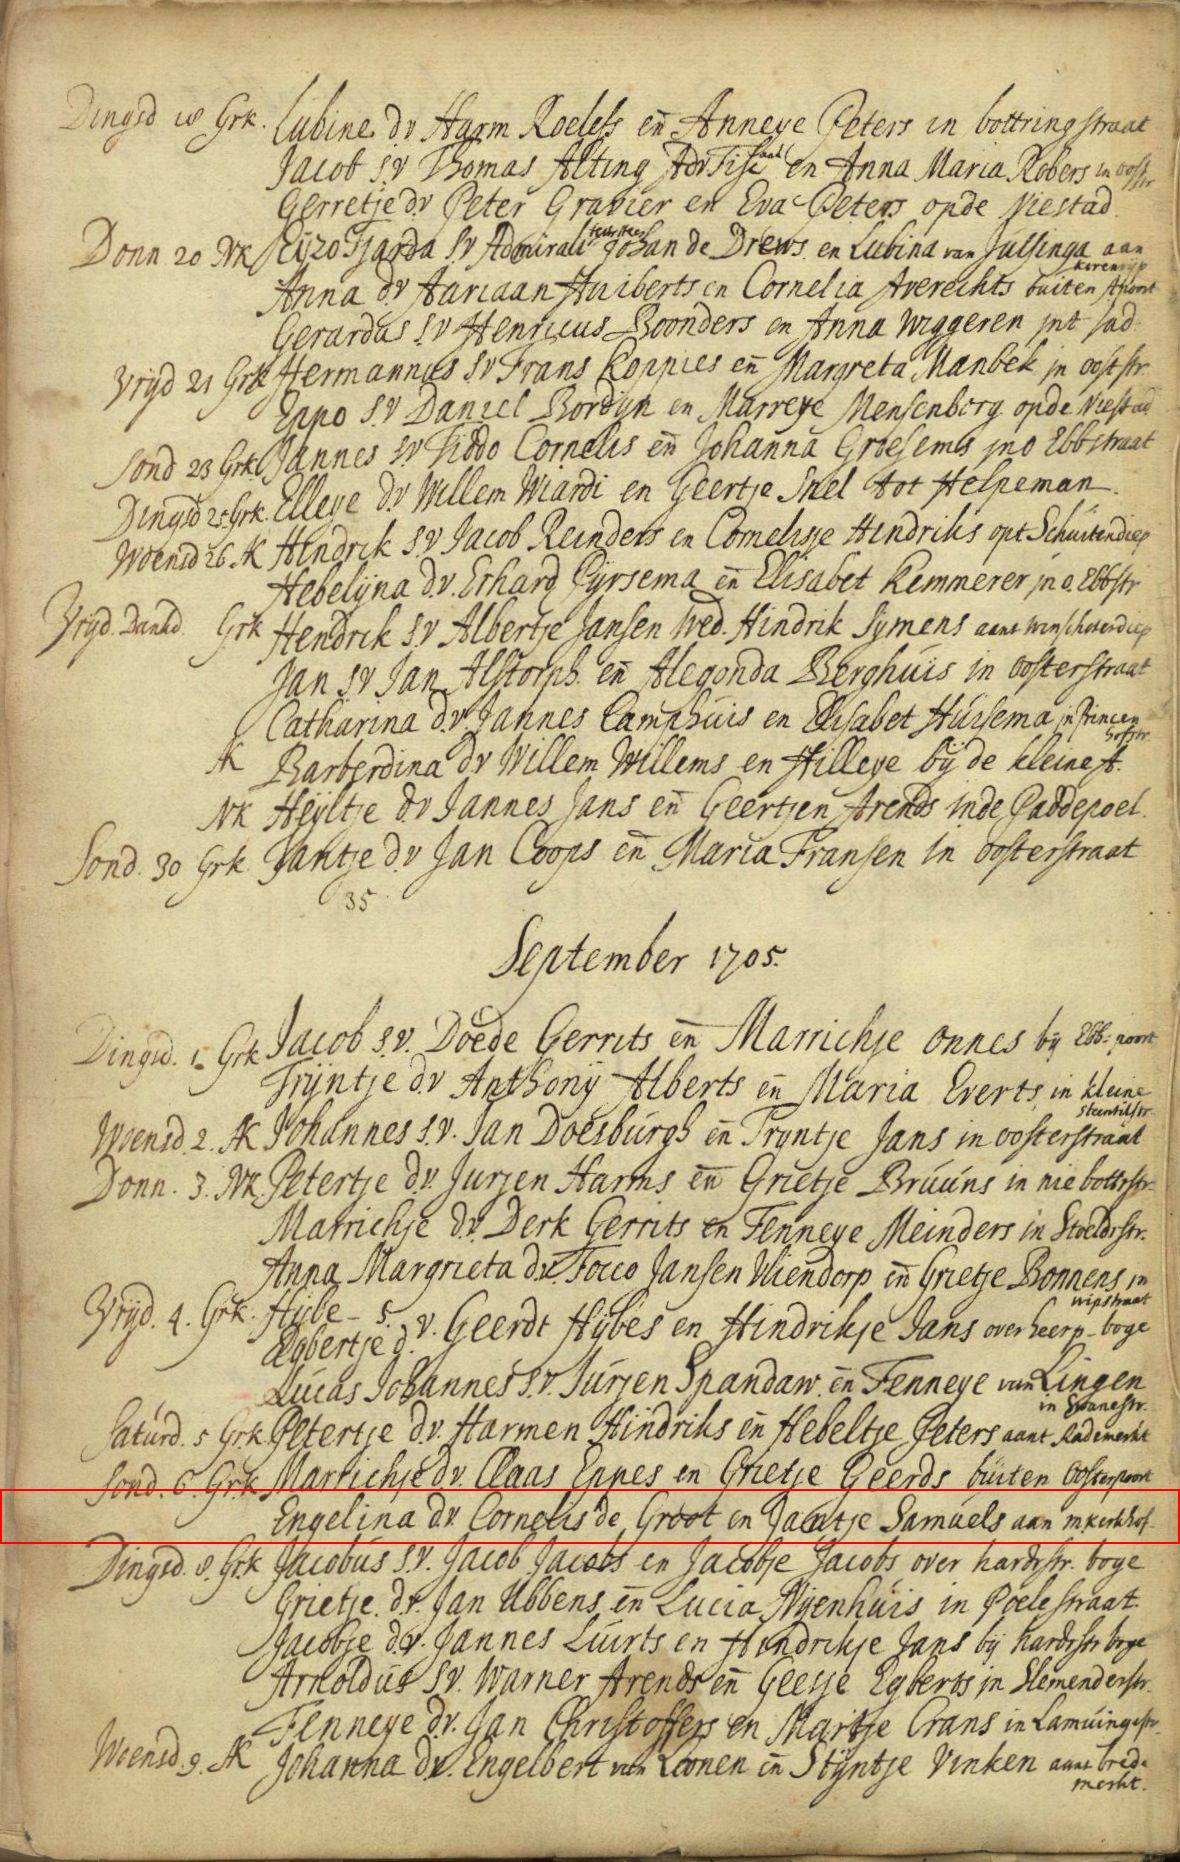 Dingsd 18 Grk. Lubine dv Harm Roelefs en Anneye Peters in bottringstraat
Jacob s.v Thomas Alting Adv Fiscaal en Anna Maria Robers in oostr
Gerretje dv Peter Gravier en Eva Peters opde Niestad
Donn 20 NK Eijzo Tjarda s.v Admirali Johan de Drews en Lubina van Julsinga aan
Anna dv Aariaan Huiberts en Cornelia Averechts buiten Apoort
Gerardus s.v Henricus Boonders en Anna Wiggeren int
Vrijd 21 Grk Hermannus s.v Frans Coppies en Margreta Manbek in ooststr.
Eppo s.v Daniel Bordijn en Marreye Mensenborg opde Niestad
Sond 23 Grk Jannes s.v Fiddo Cornelis en Johanna Groesems jn o Ebbstraat
Dingsd 25 Grk. Elleye dv Willem Wiardi en Geertje Snel tot Helpeman.
Woensd 26. AK Hindrik s.v Jacob Reinders en Cornelisje Hindriks opt Schuitendiep
Hebelijna d.v. Erhard Pijrsema en Elisabet Kemmerer jn o. Ebbstr
Vrijd. Dankd. Grk Hendrik s.v Albertje Jansen Wed. Hindrik Sijmens aant Winschoterdiep
Jan s.v Jan Alstorph. en Alegonda Berghuis in oosterstraat
Catharina d.v. Jannes Camphuis en Elisabet Huisema jn Princen
hofstr.
AK Barberdina dv Willem Willems en Hilleye bij de kleine A.
NK Heijltje dv Jannes Jans en Geertjen Arends inde Paddepoel.
Sond. 30 Grk Jantje d.v Jan Coops en Maria Fransen in oosterstraat
35
September 1705.
Dingsd. 1. Grk Jacob s.v. Doede Gerrits en Marrichje Onnes bij Ebb-poort
Trijntje dv Anthonij Alberts en Maria Everts in kleine
steentilstr.
Woensd. 2. AK Johannes s.v. Jan Doesburgh en Trijntje Jans in oosterstraat
Donn. 3. NK. Petertje d.v. Jurjen Harms en Grietje Bruuns in nie bottrstr-
Marrichje d.v. Derk Gerrits en Fenneye Meinders in Stoeldrstr.
Anna Margrieta d.v. Focco Jansen Vliendorp en Grietje Bonnens in
wipstraat
Vrijd. 4. Grk. Hijbe - s. v. Geerdt Hijbes en Hindrikje Jans over heerp-boge
Egbertje d.
Lucas Johannes s.v. Jurjen Spandaw en Fenneye van Lingen
in Swanestr.
Saturd. 5 Grk. Petertje d.v. Harmen Hindriks en Hebeltje Peters aant Rademerkt
Sond. 6. Grk Marrichje d.v. Claas Eppes en Grietje Geerds buiten Oosterpoort
Engelina dv. Cornelis de Groot en Jantje Samuels aan mkerkhof-
Dingsd. 8. Grk Jacobus s.v. Jacob Jacobs en Jacobje Jacobs over hardrstr. boge
Grietje d.v. Jan Ubbens en Lucia Nijenhuis in Poelestraat.
Jacobje d.v. Jannes Luirts en Hindrikje Jans bij hardrstr boge
Arnoldus s.v. Warner Arends en Geesje Egberts jn Slemenderstr.
Fenneye d.v. Jan Christoffers en Martje Crans in Lamuingestr.
Woensd. 9. AK Johanna d.v. Engelbert van Loonen en Stijntje Vinken aant brede
merkt.